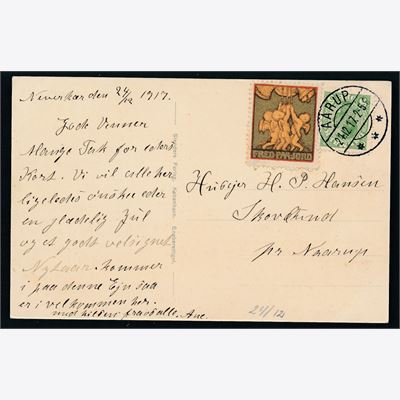 Neverkær den 24/12 1917.
Gode Venner
Mange Tak for eders
Kort. Vi vil alle her
ligeledes ønske eder
en glædelig Jul
og et godt velsignet
Nytaar. kommer
i paa denne Ejn saa
er i velkommen her.
med hilsen fra alle. Ane.
FRED PAA JORD
AARUP
24.12.17. 2-5 E
Husejer H. P. Hansen
Skovlund
pr Naarup
24/12